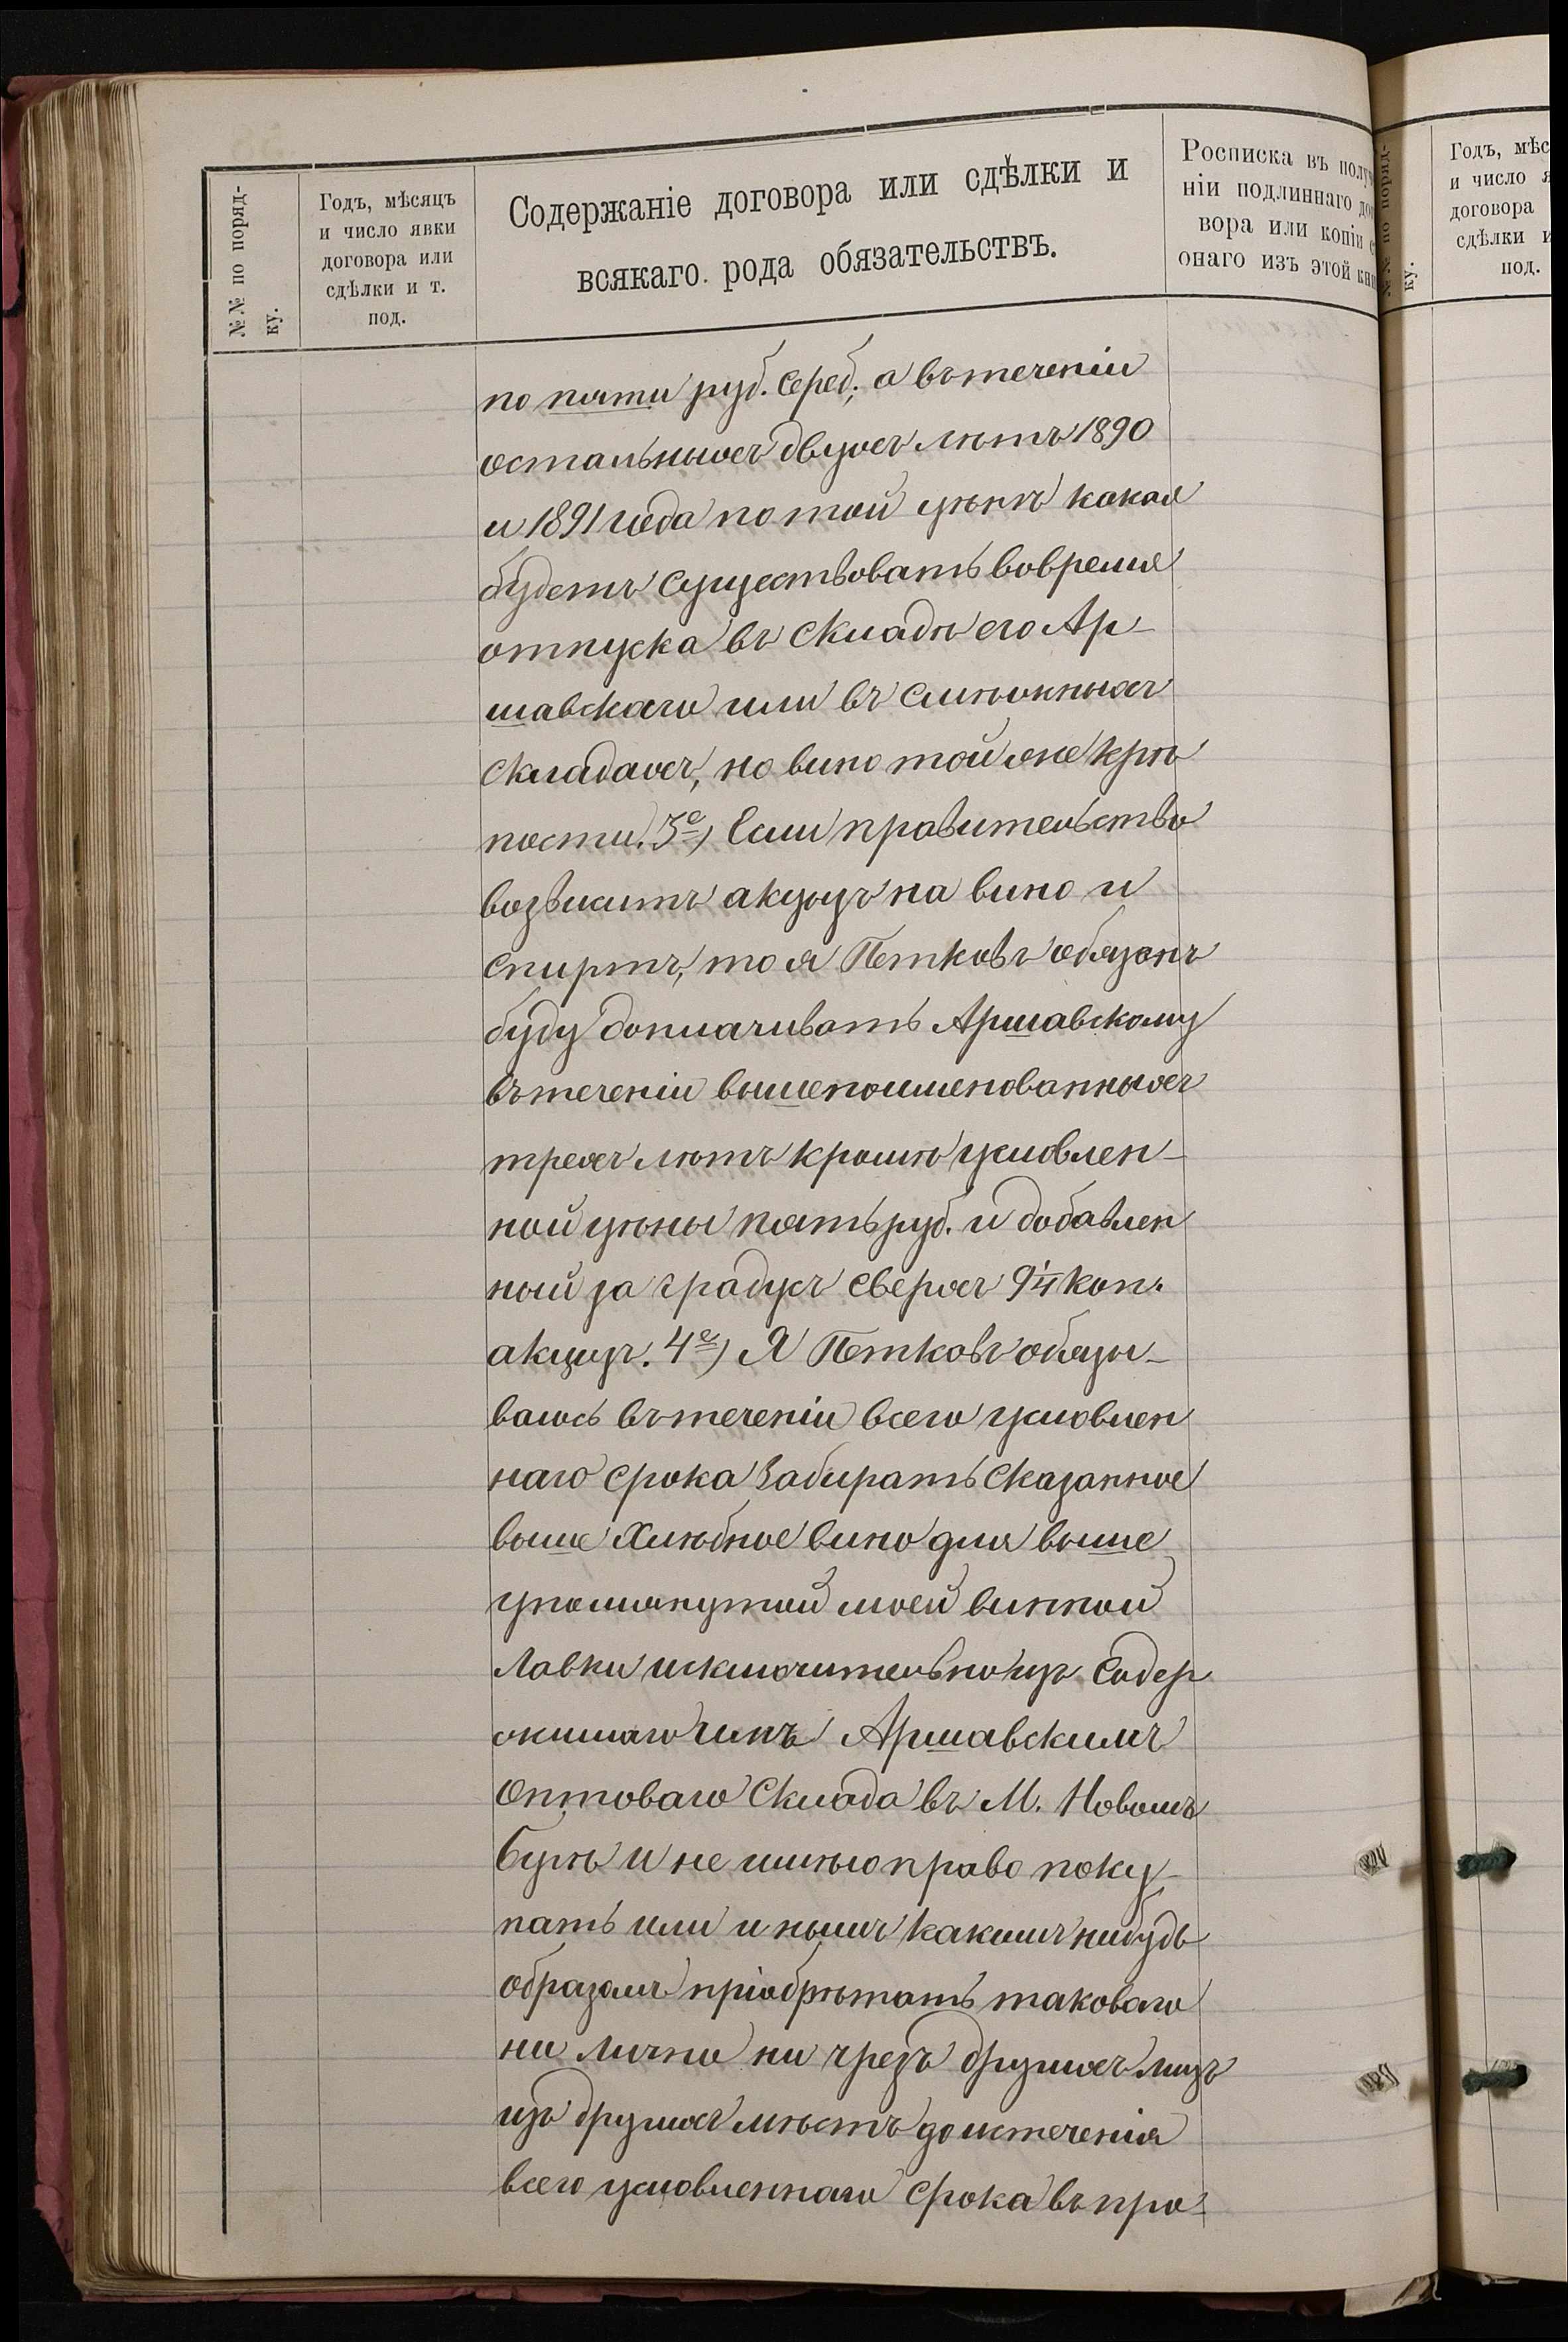 №№ по поряд-
ку.
Годъ, мѣсяцъ
и число явки
договора или
сдѣлки и т.
под.
Содержаніе договора или сдѣлки и
всякаго рода обязательствъ.
Росписка въ полу
ніи подлиннаго до
вора или копіи с
онаго изъ этой кни
по пяти руб. Сереб; а втеченіи
остальныхъ двухъ лѣтъ 1890
и 1891 года по той цѣнѣ какая
будетъ существовать вовремя
отпуска въ Складѣ его Ар-
шавскаго или въ смѣжныхъ
складахъ, но вино той же крѣ
пости. 3е) Если правительство
возвыситъ акцызъ на вино и
спиртъ, то я Петковъ обязанъ
буду доплачивать Аршавскому
втеченіи вышепоименованныхъ
трехъ лѣтъ кромѣ условлен-
ной цѣны пять руб. и добавлен
ный за градусъ сверхъ 9¼ коп.
акцизъ. 4е) Я Петковъ обязы-
ваюсь втеченіи всего условлен
наго срока Забирать Сказанное
выше Хлѣбное вино для выше
упомянутой моей винной
Лавки исключительно изъ Содер
жимаго имъ Аршавскимъ
Оптоваго Склада въ М. Новомъ
Бугѣ и не имѣю право поку-
пать или инымъ какимъ нибудь
образомъ пріобрѣтать таковаго
ни лично ни чрезъ другихъ лицъ
изъ другихъ мѣстъ до истеченія
всего условленнаго Срока въ про-
№№ по поряд-
ку.
Годъ, мѣс
и число я
договора
сдѣлки и
под.